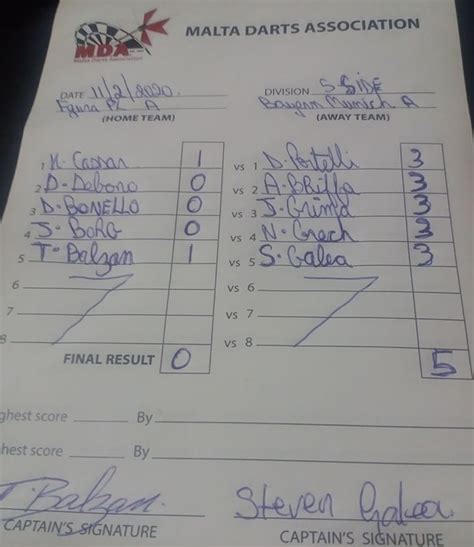 MALTA DARTS ASSOCIATION
MDA
Malta Darts Association
DATE 11/2/2020 DIVISION 5 SIDE
Figura A Bayern Munich A
(HOME TEAM) (AWAY TEAM)
1 Cassar 1 vs 1 D. Portelli 3
2 D. Debono 0 vs 2 A. BRiffa 3
3 D. BONELLO 0 vs 3 J. Grima 3
4 J. BoRG 0 vs 4 N. Grech 3
5 T. Balzan 1 vs 5 S. Galea 3
6 vs 6
7 vs 7
8 vs 8
FINAL RESULT 0 5
ghest score By
hest score By
T. Balzan. Steven Galea.
CAPTAIN'S SIGNATURE CAPTAIN'S SIGNATURE